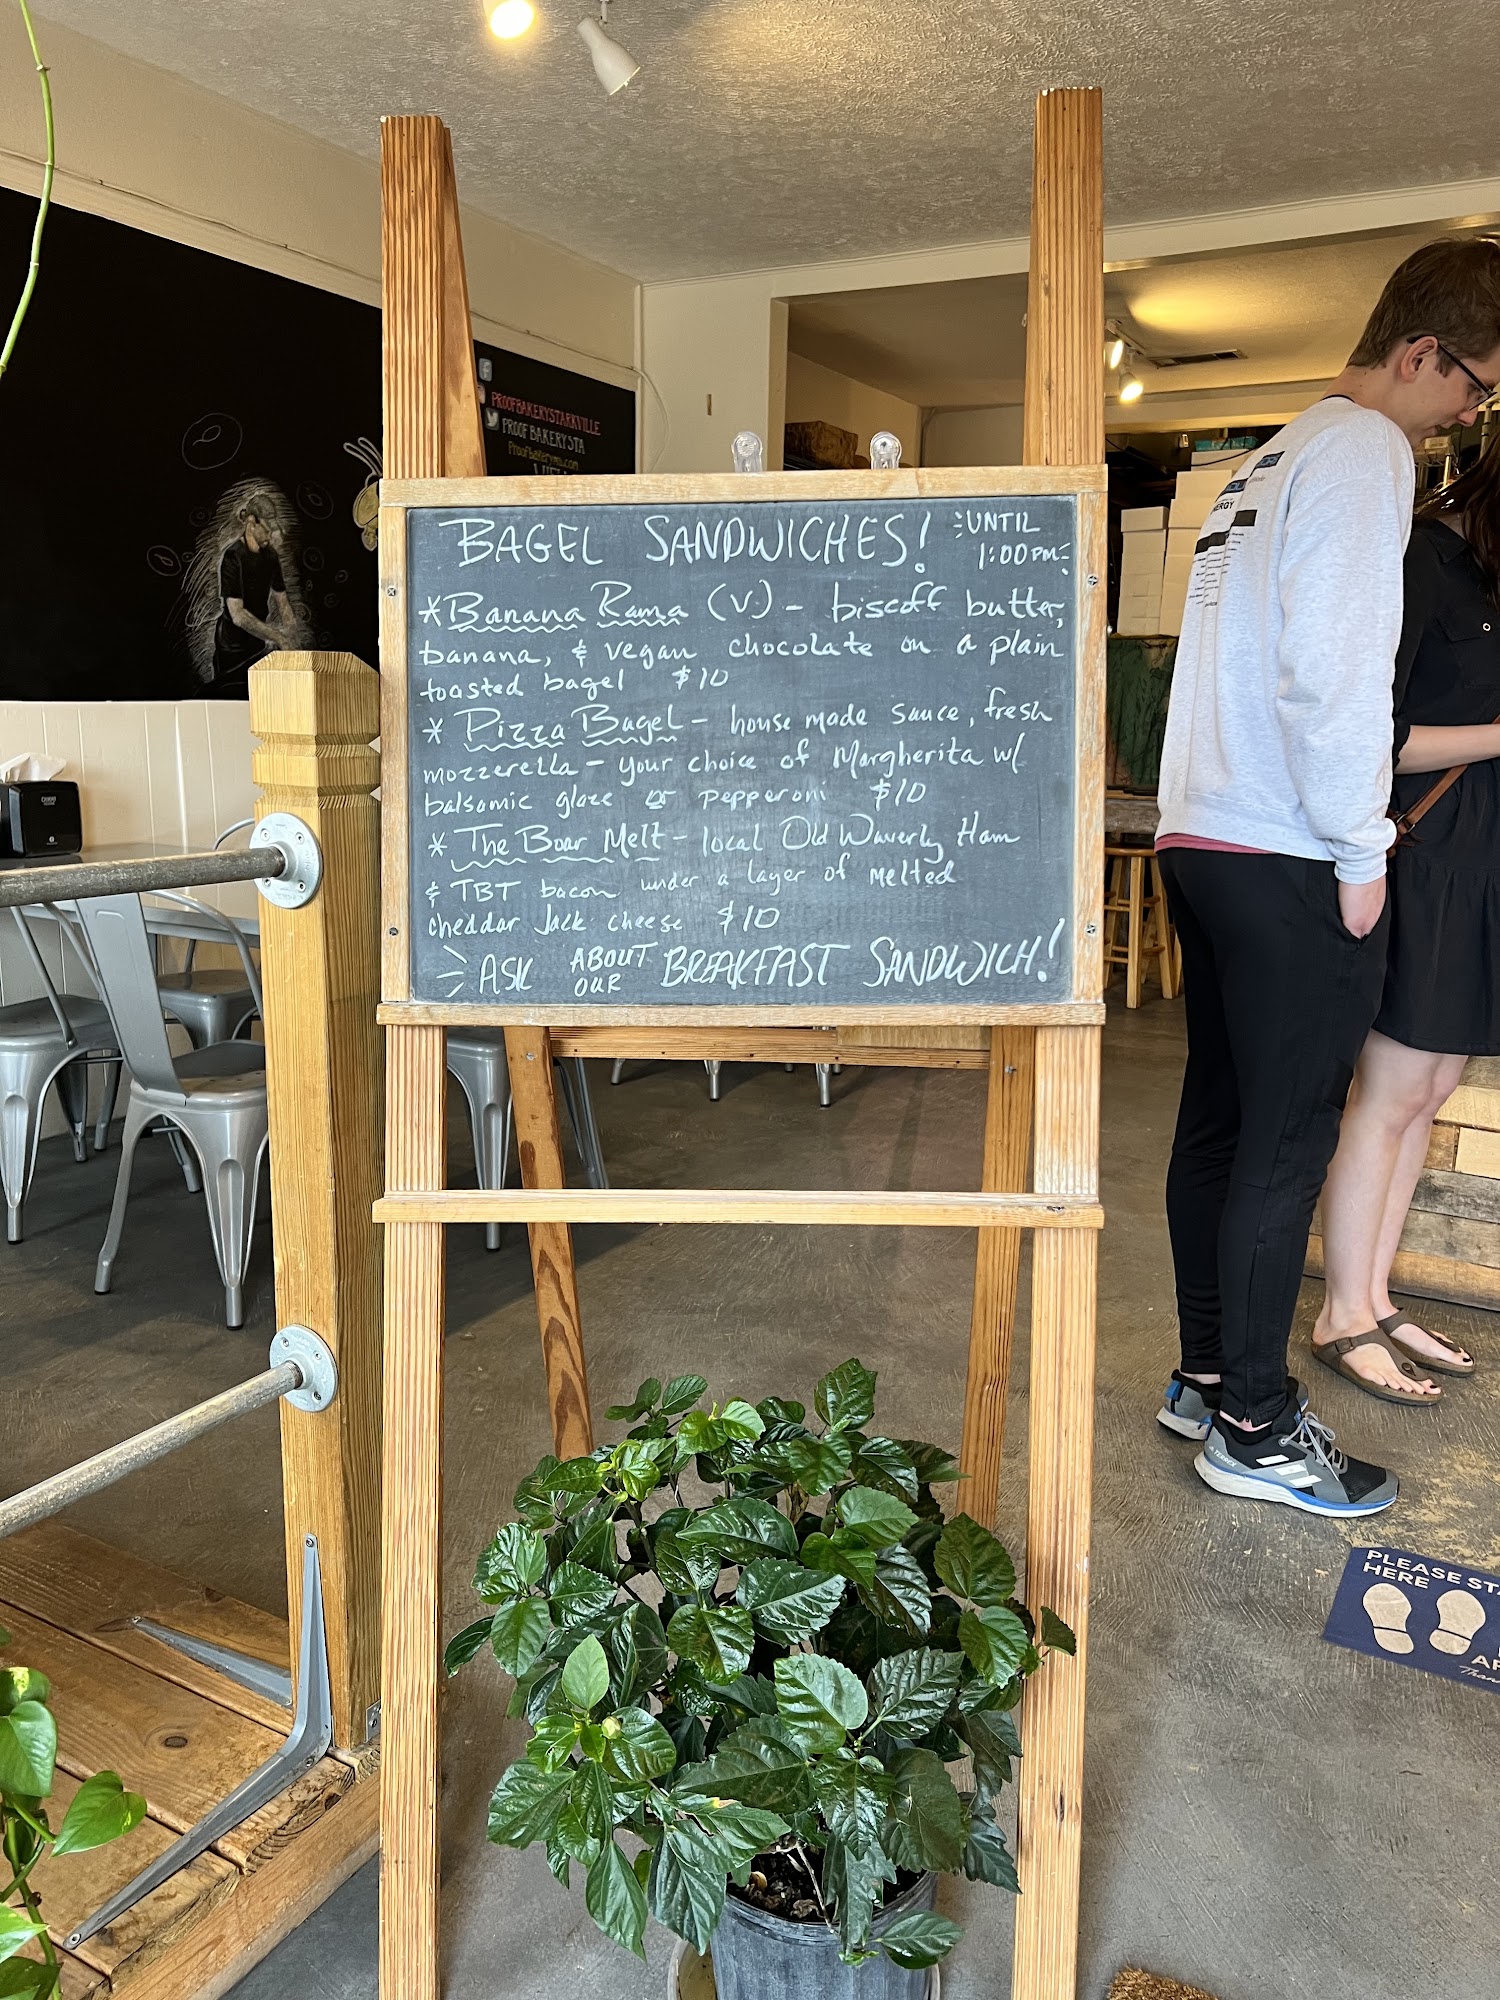 PROOFBAKERYSTARKVILLE
PROOFBAKERYSTA
Proofbakeryms.com
BAGEL SANDWICHES! UNTIL
1:00PM
*Banana Rama (V.) - biscoff butter,
banana, & vegan chocolate on a plain
toasted bagel $10
* Pizza Bagel - house made sauce, fresh
mozzerella - your choice of Margherita w/
balsamic glaze or pepperoni $10
* The Boar Melt - local Old Waverly Ham
& TBT bacon under a layer of melted
cheddar Jack cheese $10
ASK ABOUT OUR BREAKFAST SANDWICH!
PLEASE STA
HERE